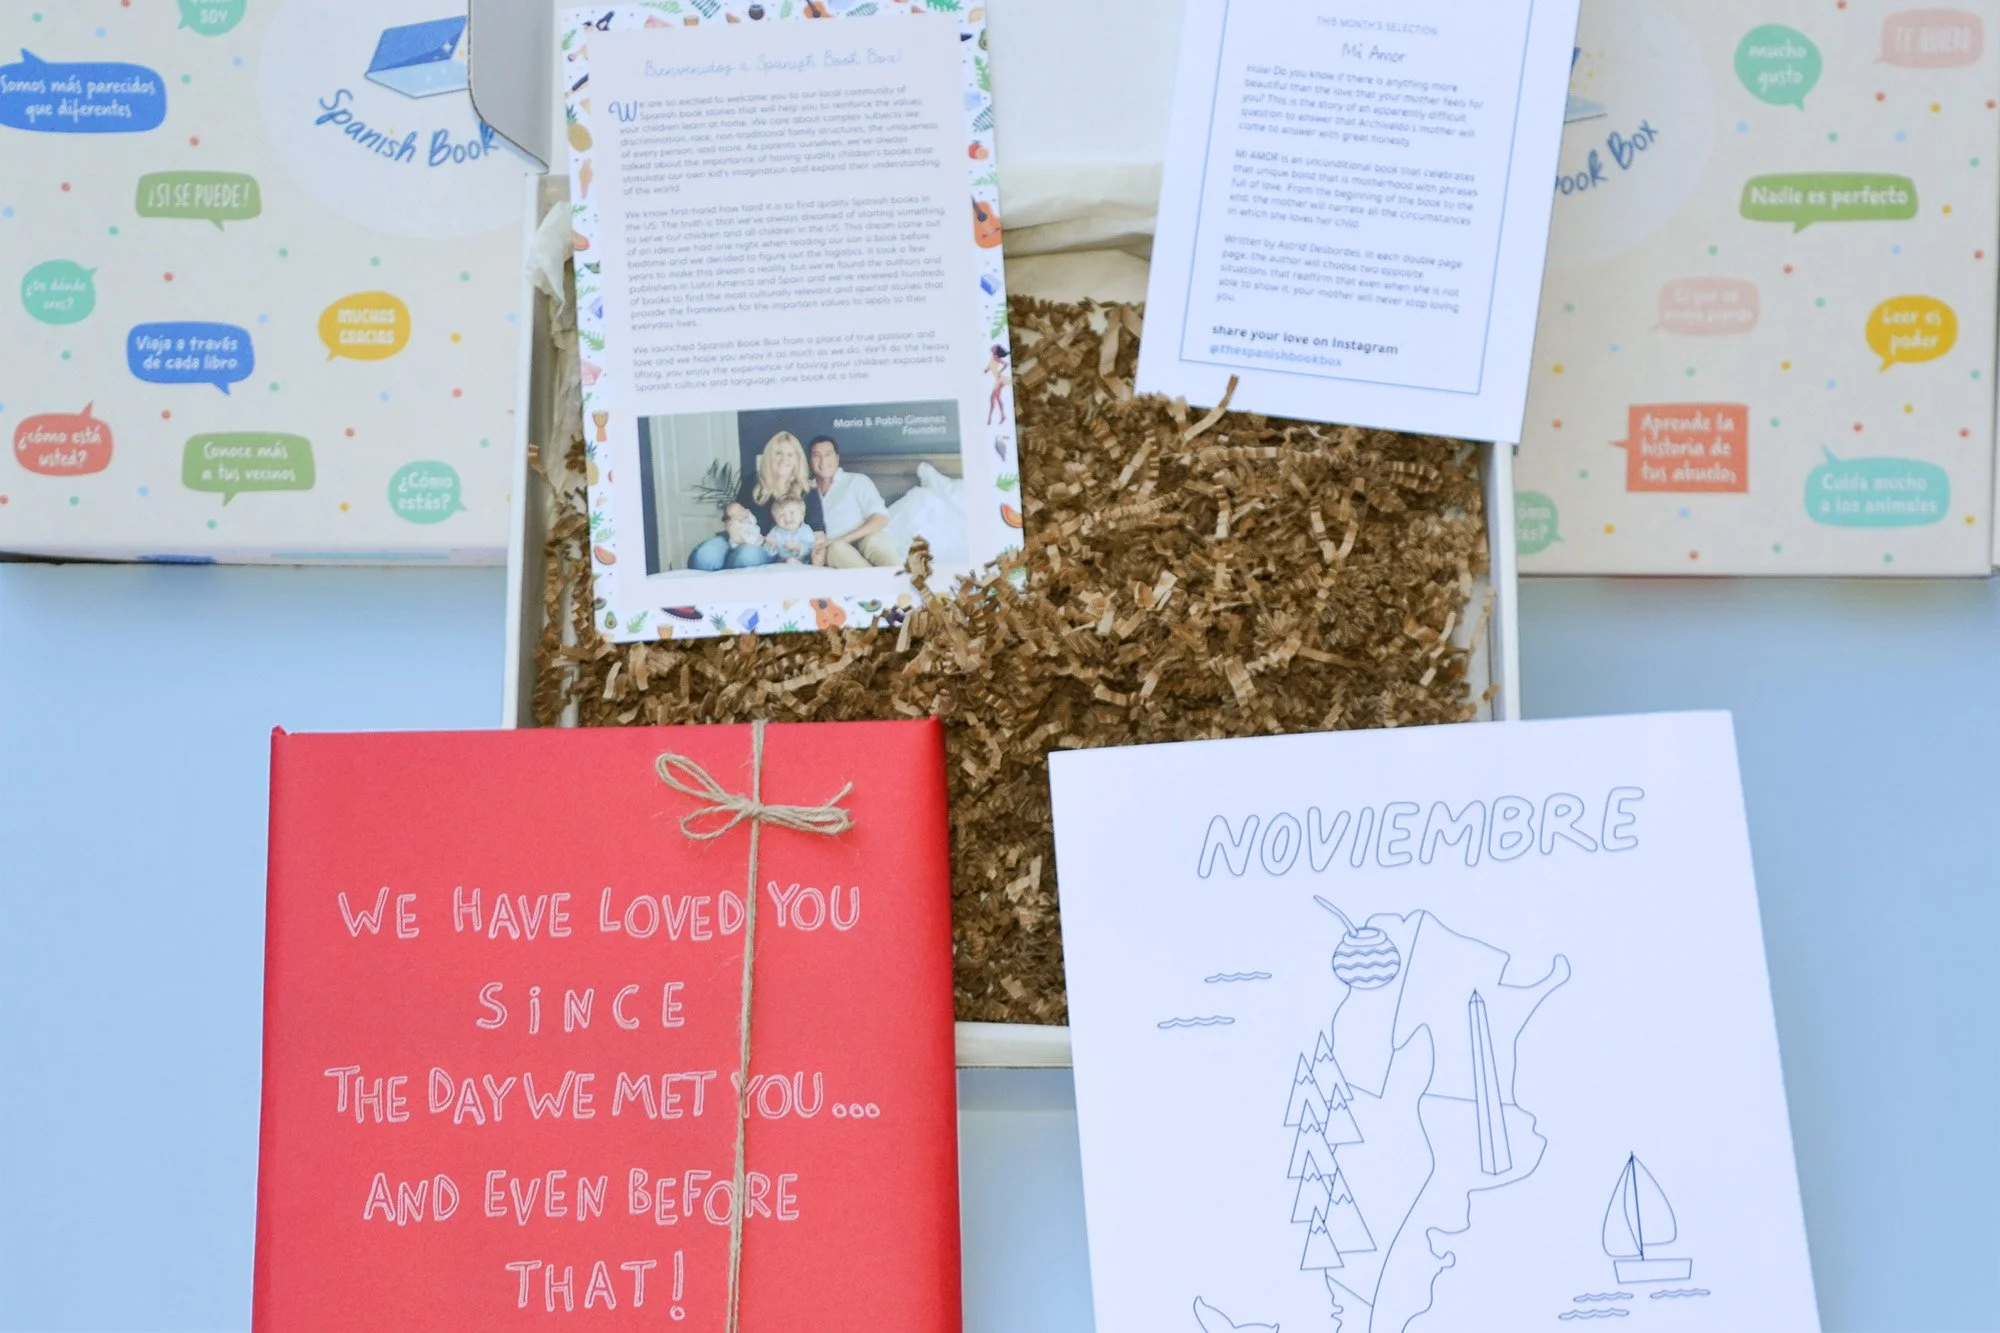 SOY
Somos más parecidos
que diferentes
Spanish Book
¡SI SE PUEDE!
¿De dónde
eres?
MUCHAS
GRACIAS
Viaja a través
de cada libro
¿cómo está
usted?
Conoce más
a tus vecinos
¿Cómo
estás?
Bienvenidos a Spanish Book Box!
We are so excited to welcome you to our local community of
Spanish book stories that will help you to reinforce the values
your children learn at home. We care about complex subjects like
discrimination, race, non-traditional family structures, the uniqueness
of every person, and more. As parents ourselves, we've always
talked about the importance of having quality children's books that
stimulate our own kid's imagination and expand their understanding
of the world.
We know first-hand how hard it is to find quality Spanish books in
the US. The truth is that we've always dreamed of starting something
to serve our children and all children in the US. This dream came out
of an idea we had one night when reading our son a book before
bedtime and we decided to figure out the logistics. It took a few
years to make this dream a reality, but we've found the authors and
publishers in Latin America and Spain and we've reviewed hundreds
of books to find the most culturally relevant and special stories that
provide the framework for the important values to apply to their
everyday lives.
We launched Spanish Book Box from a place of true passion and
love and we hope you enjoy it as much as we do. We'll do the heavy
lifting, you enjoy the experience of having your children exposed to
Spanish culture and language, one book at a time.
Maria & Pablo Gimenez
Founders
THIS MONTH'S SELECTION:
Mi Amor
Hola! Do you know if there is anything more
beautiful than the love that your mother feels for
you? This is the story of an apparently difficult
question to answer that Archivaldo's mother will
come to answer with great honesty.
MI AMOR is an unconditional book that celebrates
that unique bond that is motherhood with phrases
full of love. From the beginning of the book to the
end, the mother will narrate all the circumstances
in which she loves her child.
Written by Astrid Desbordes, in each double page
page, the author will choose two opposite
situations that reaffirm that even when she is not
able to show it, your mother will never stop loving
you.
share your love on Instagram
@thespanishbookbox
Book Box
mucho
gusto
TE QUIERO
Nadie es perfecto
Leer es
poder
Aprende la
historia de
tus abuelos
Cuida mucho
a los animales
WE HAVE LOVED YOU
SINCE
THE DAY WE MET YOU...
AND EVEN BEFORE
THAT!
NOVIEMBRE